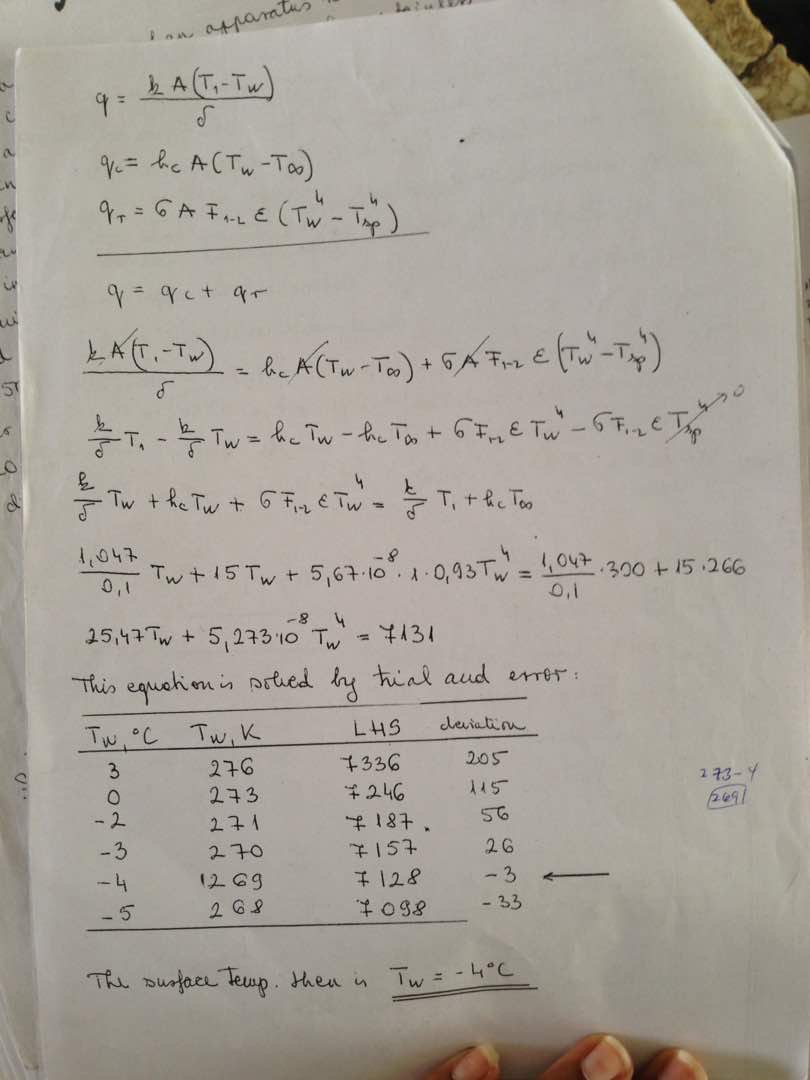 an apparatus
q = k A(T₁ - Tw) / δ
qc = hc A(Tw - T∞)
qr = σ A F₁₋₂ ε (Tw⁴ - Tsp⁴)
q = qc + qr
k A(T₁ - Tw) / δ = hc A(Tw - T∞) + σ A F₁₋₂ ε (Tw⁴ - Tsp⁴)
k/δ T₁ - k/δ Tw = hc Tw - hc T∞ + σ F₁₋₂ ε Tw⁴ - σ F₁₋₂ ε Tsp⁴ → 0
k/δ Tw + hc Tw + σ F₁₋₂ ε Tw⁴ = k/δ T₁ + hc T∞
1,047/0,1 Tw + 15 Tw + 5,67·10⁻⁸ · 1 · 0,93 Tw⁴ = 1,047/0,1 · 300 + 15 · 266
25,47 Tw + 5,273·10⁻⁸ Tw⁴ = 7131
This equation is solved by trial and error:
Tw, °C Tw, K LHS deviation
3 276 7336 205
0 273 7246 115
-2 271 7187 56
-3 270 7157 26
-4 269 7128 -3 ←
-5 268 7098 -33
273-4
269
The surface temp. then is Tw = -4°C